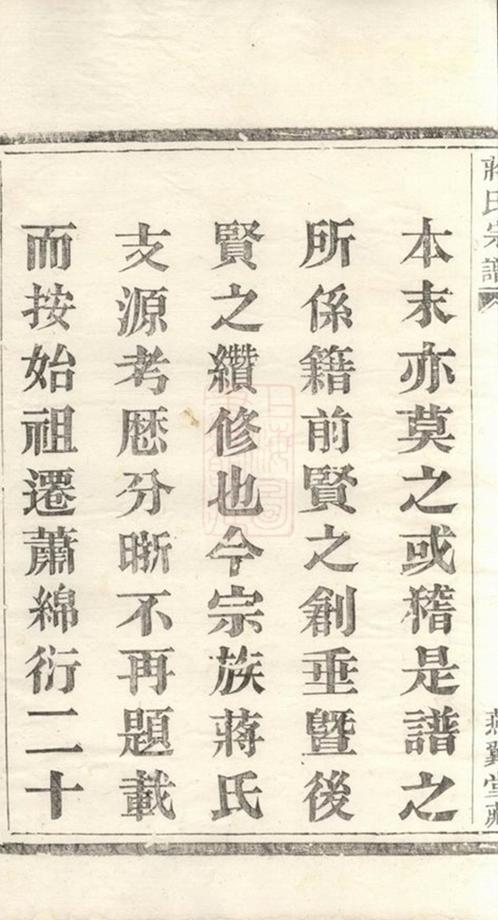 蔣氏宗譜
燕翼堂藏
本末亦莫之或稽是譜之
所係籍前賢之創垂曁後
賢之纘修也今宗族蔣氏
支源考厯分晰不再題載
而按始祖遷蕭綿衍二十